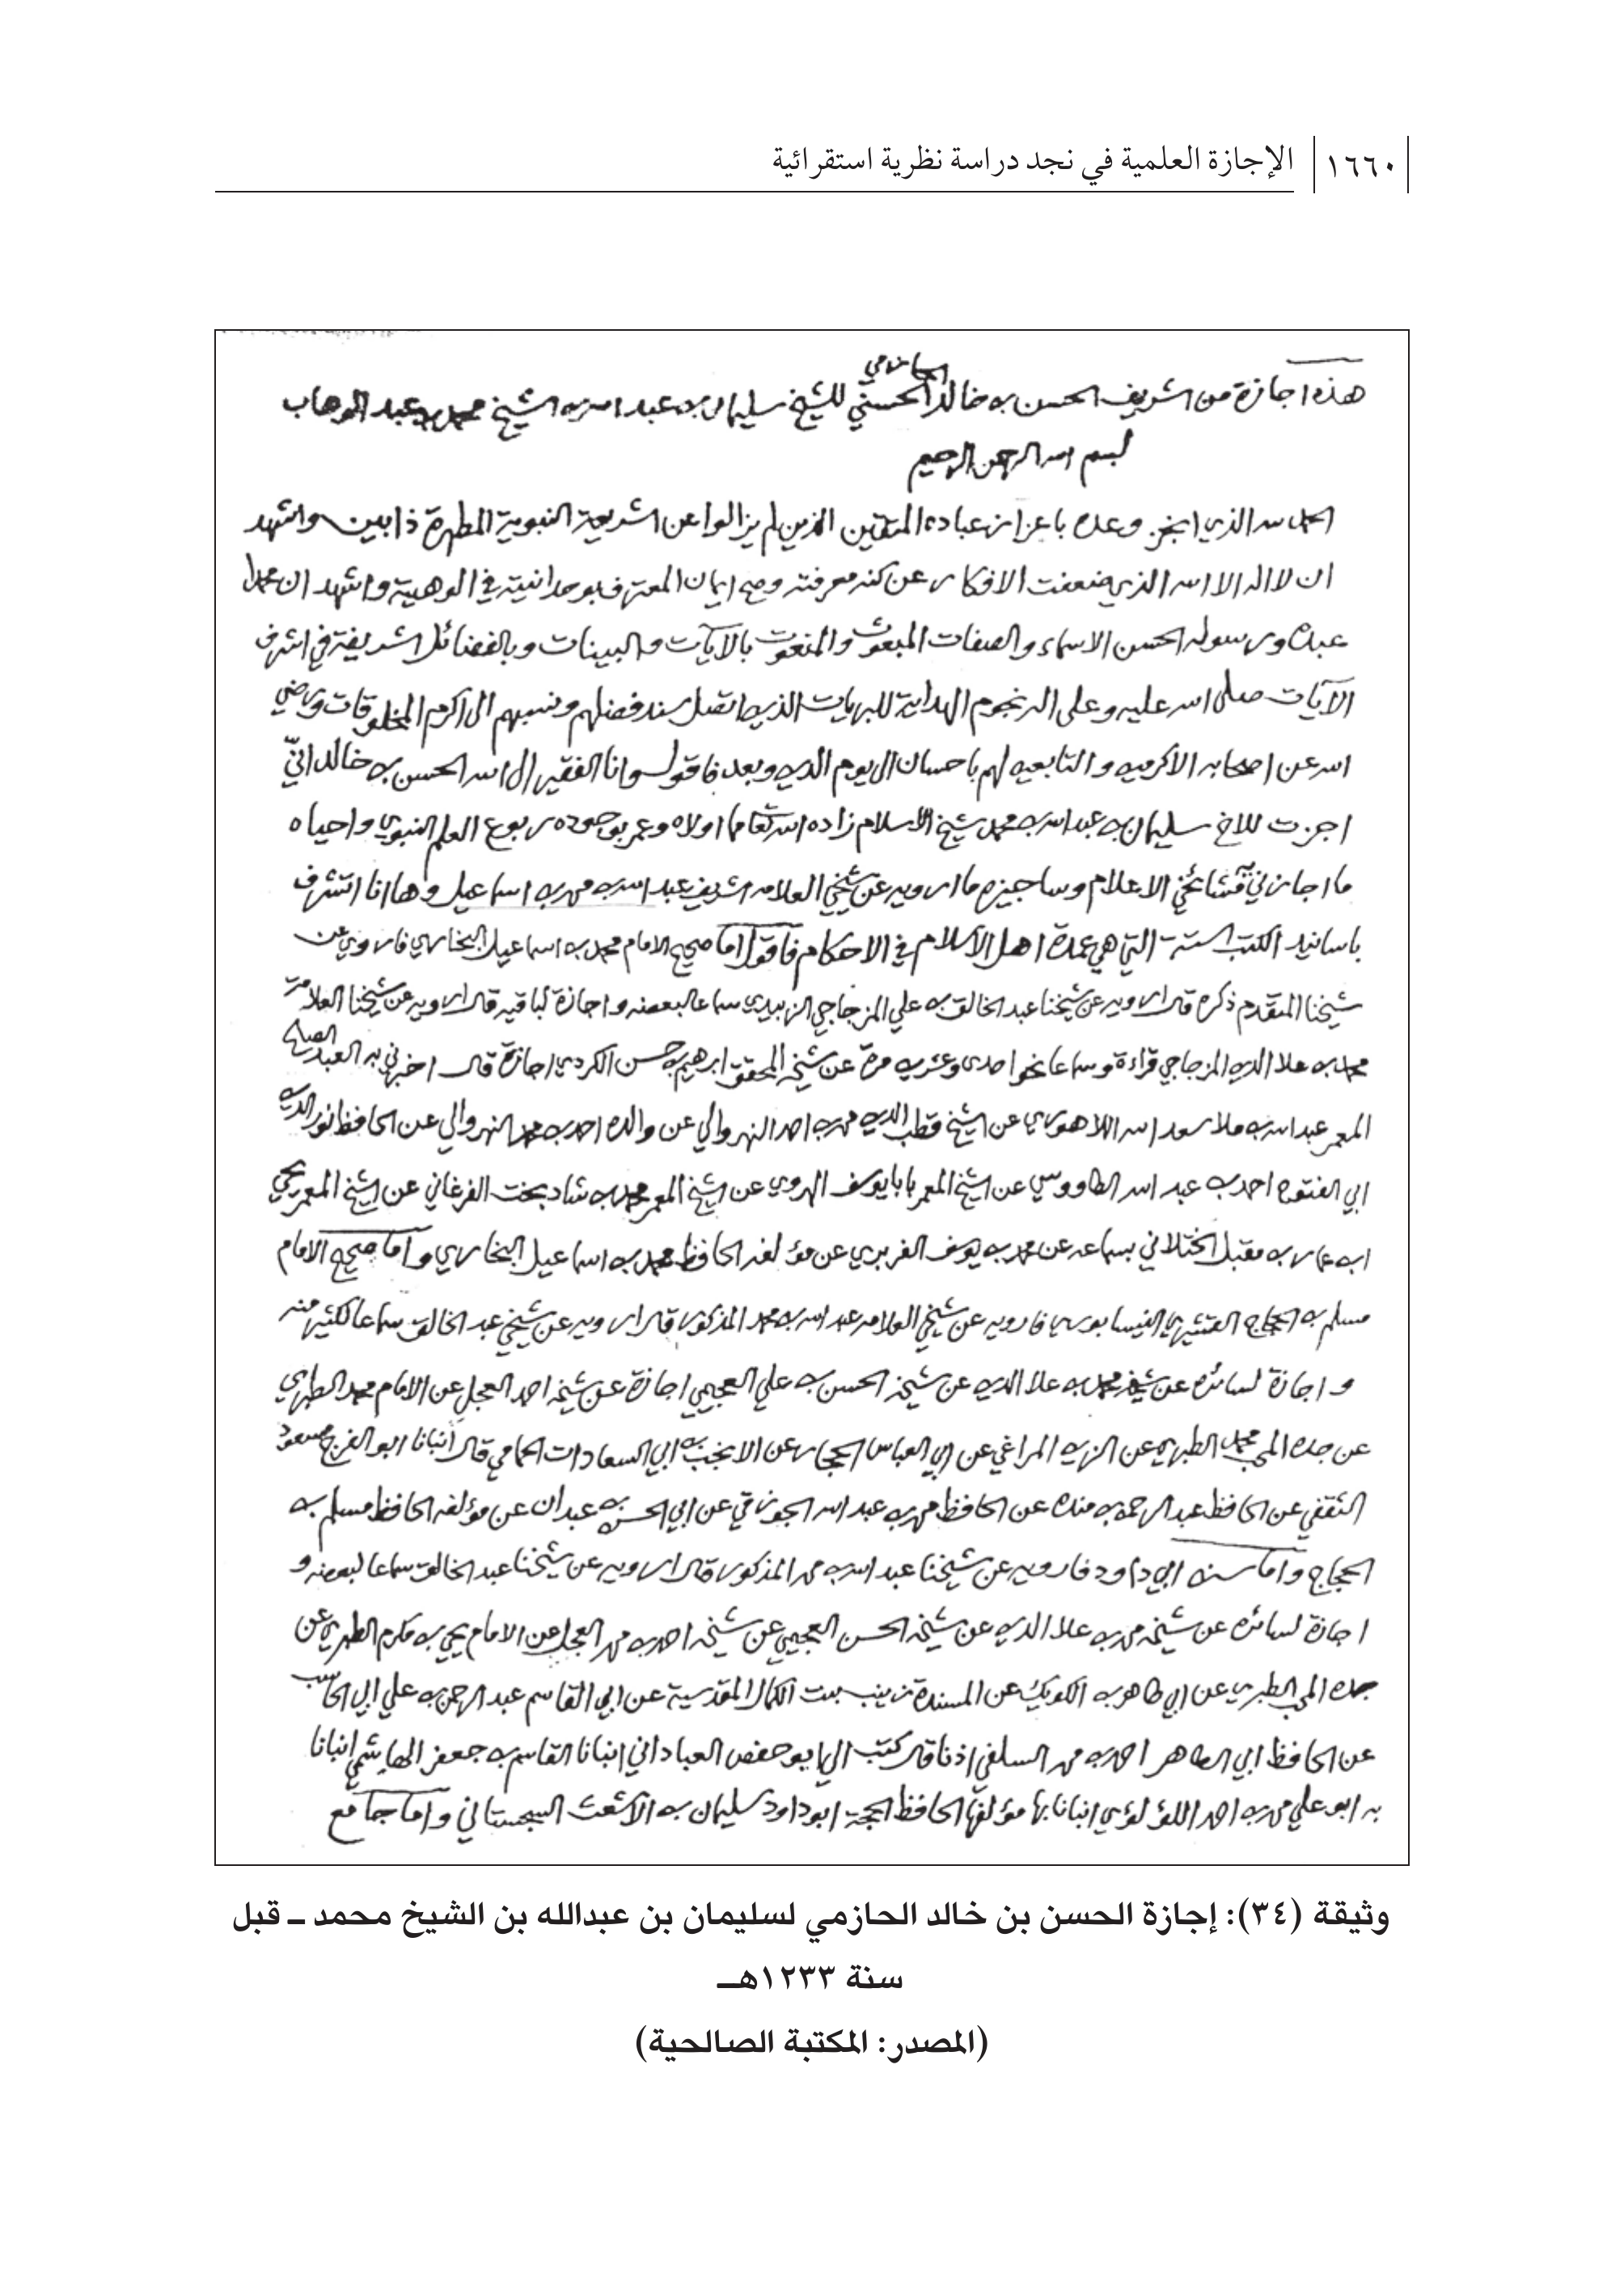 ١٦٦٠ الإجازة العلمية في نجد دراسة نظرية استقرائية
الحازمي
هذه اجازة من الشريف الحسن بن خالد الحسني للشيخ سليمان بن عبد الله بن الشيخ محمد بن عبد الوهاب
بسم الله الرحمن الرحيم
الحمد لله الذي انجز وعده باعزاز عباده المتقين الذين لم يزالوا عن الشريعة النبوية المطهرة ذابين واشهد
ان لا اله الا الله الذي ضعفت الافكار عن كنه معرفته وصح ايمان المعترف بوحدانيته في الوهيته واشهد ان محمدا
عبده ورسوله الحسن الاسماء والصفات المبعوث والمنعوت بالآيات والبينات وبالفضائل الشريفة في اشرف
الآيات صلى الله عليه وعلى اله نجوم الهداية للبريات الذين اتصل سند فضلهم ونسبهم الى اكرم المخلوقات ورضي
الله عن اصحابه الاكرمين والتابعين لهم باحسان الى يوم الدين وبعد فاقول وانا الفقير الى الله الحسن بن خالد اني
اجزت للاخ سليمان بن عبد الله بن محمد شيخ الاسلام زاده الله تعالى مما اولاه وعمر بوجوده ربوع العلم النبوي واحياه
ما اجازني مشائخي الاعلام وساجيزه ما ارويه عن شيخي العلامه الشريف عبد الله بن محمد بن اسماعيل وها انا اتشرف
باسانيد الكتب الستة التي هي عمدة اهل الاسلام في الاحكام فاقول اما صحيح الامام محمد بن اسماعيل البخاري فاروي عن
شيخنا المتقدم ذكره قال ارويه عن شيخنا عبد الخالق بن علي المزجاجي الزبيدي سماعا لبعضه واجازة لباقيه قال ارويه عن شيخنا العلامة
محمد بن علا الدين المزجاجي قراءة وسماعا نحو احدى وعشرين مرة عن شيخه المحقق ابرهيم بن حسن الكردي اجازة قال اخبرني به العبد الصالح
المعمر عبد الله بن ملا سعد الله اللاهوري عن الشيخ قطب الدين محمد بن احمد النهروالي عن والده احمد بن محمد النهروالي عن الحافظ نور الدين
ابي الفتوح احمد بن عبد الله الطاووسي عن الشيخ المعمر بابا يوسف الهروي عن الشيخ المعمر محمد بن شاد بخت الفرغاني عن الشيخ المعمر يحيى
ابن عمار بن مقبل الختلاني بسماعه عن محمد بن يوسف الفربري عن مؤلفه الحافظ محمد بن اسماعيل البخاري واما صحيح الامام
مسلم بن الحجاج القشيري النيسابوري فارويه عن شيخي العلامه عبد الله بن محمد المذكور قال ارويه عن شيخي عبد الخالق سماعا لكثير منه
واجازة لسائره عن شيخه محمد بن علا الدين عن شيخه الحسن بن علي العجيمي اجازة عن شيخه احمد العجل عن الامام محمد الطبري
عن جده المحب محمد الطبري عن الزين المراغي عن ابي العباس الحجار عن الانجب بن ابي السعادات الحمامي قال انبانا ابو الفرج مسعود
الثقفي عن الحافظ عبد الرحمن بن منده عن الحافظ محمد بن عبد الله الجوزقي عن ابي الحسن بن عبدان عن مؤلفه الحافظ مسلم بن
الحجاج واما سنن ابي داود فارويه عن شيخنا عبد الله بن محمد المذكور قال ارويه عن شيخنا عبد الخالق سماعا لبعضه و
اجازة لسائره عن شيخه محمد بن علا الدين عن شيخه الحسن العجيمي عن شيخه احمد بن محمد العجل عن الامام يحيى بن مكرم الطبري عن
جده المحب الطبري عن ابي طاهر بن الكويك عن المسندة زينب بنت الكمال المقدسية عن ابي القاسم عبد الرحمن بن علي ابي الحاسب
عن الحافظ ابي الطاهر احمد بن محمد السلفي اذنا قال كتب الي ابو حفص العباداني انبانا القاسم بن جعفر الهاشمي انبانا
به ابو علي محمد بن احمد اللؤلؤي انبانا بها مؤلفها الحافظ الحجة ابو داود سليمان بن الاشعث السجستاني واما جامع
وثيقة (٣٤): إجازة الحسن بن خالد الحازمي لسليمان بن عبدالله بن الشيخ محمد ــ قبل
سنة ١٢٣٣هــ
(المصدر: المكتبة الصالحية)